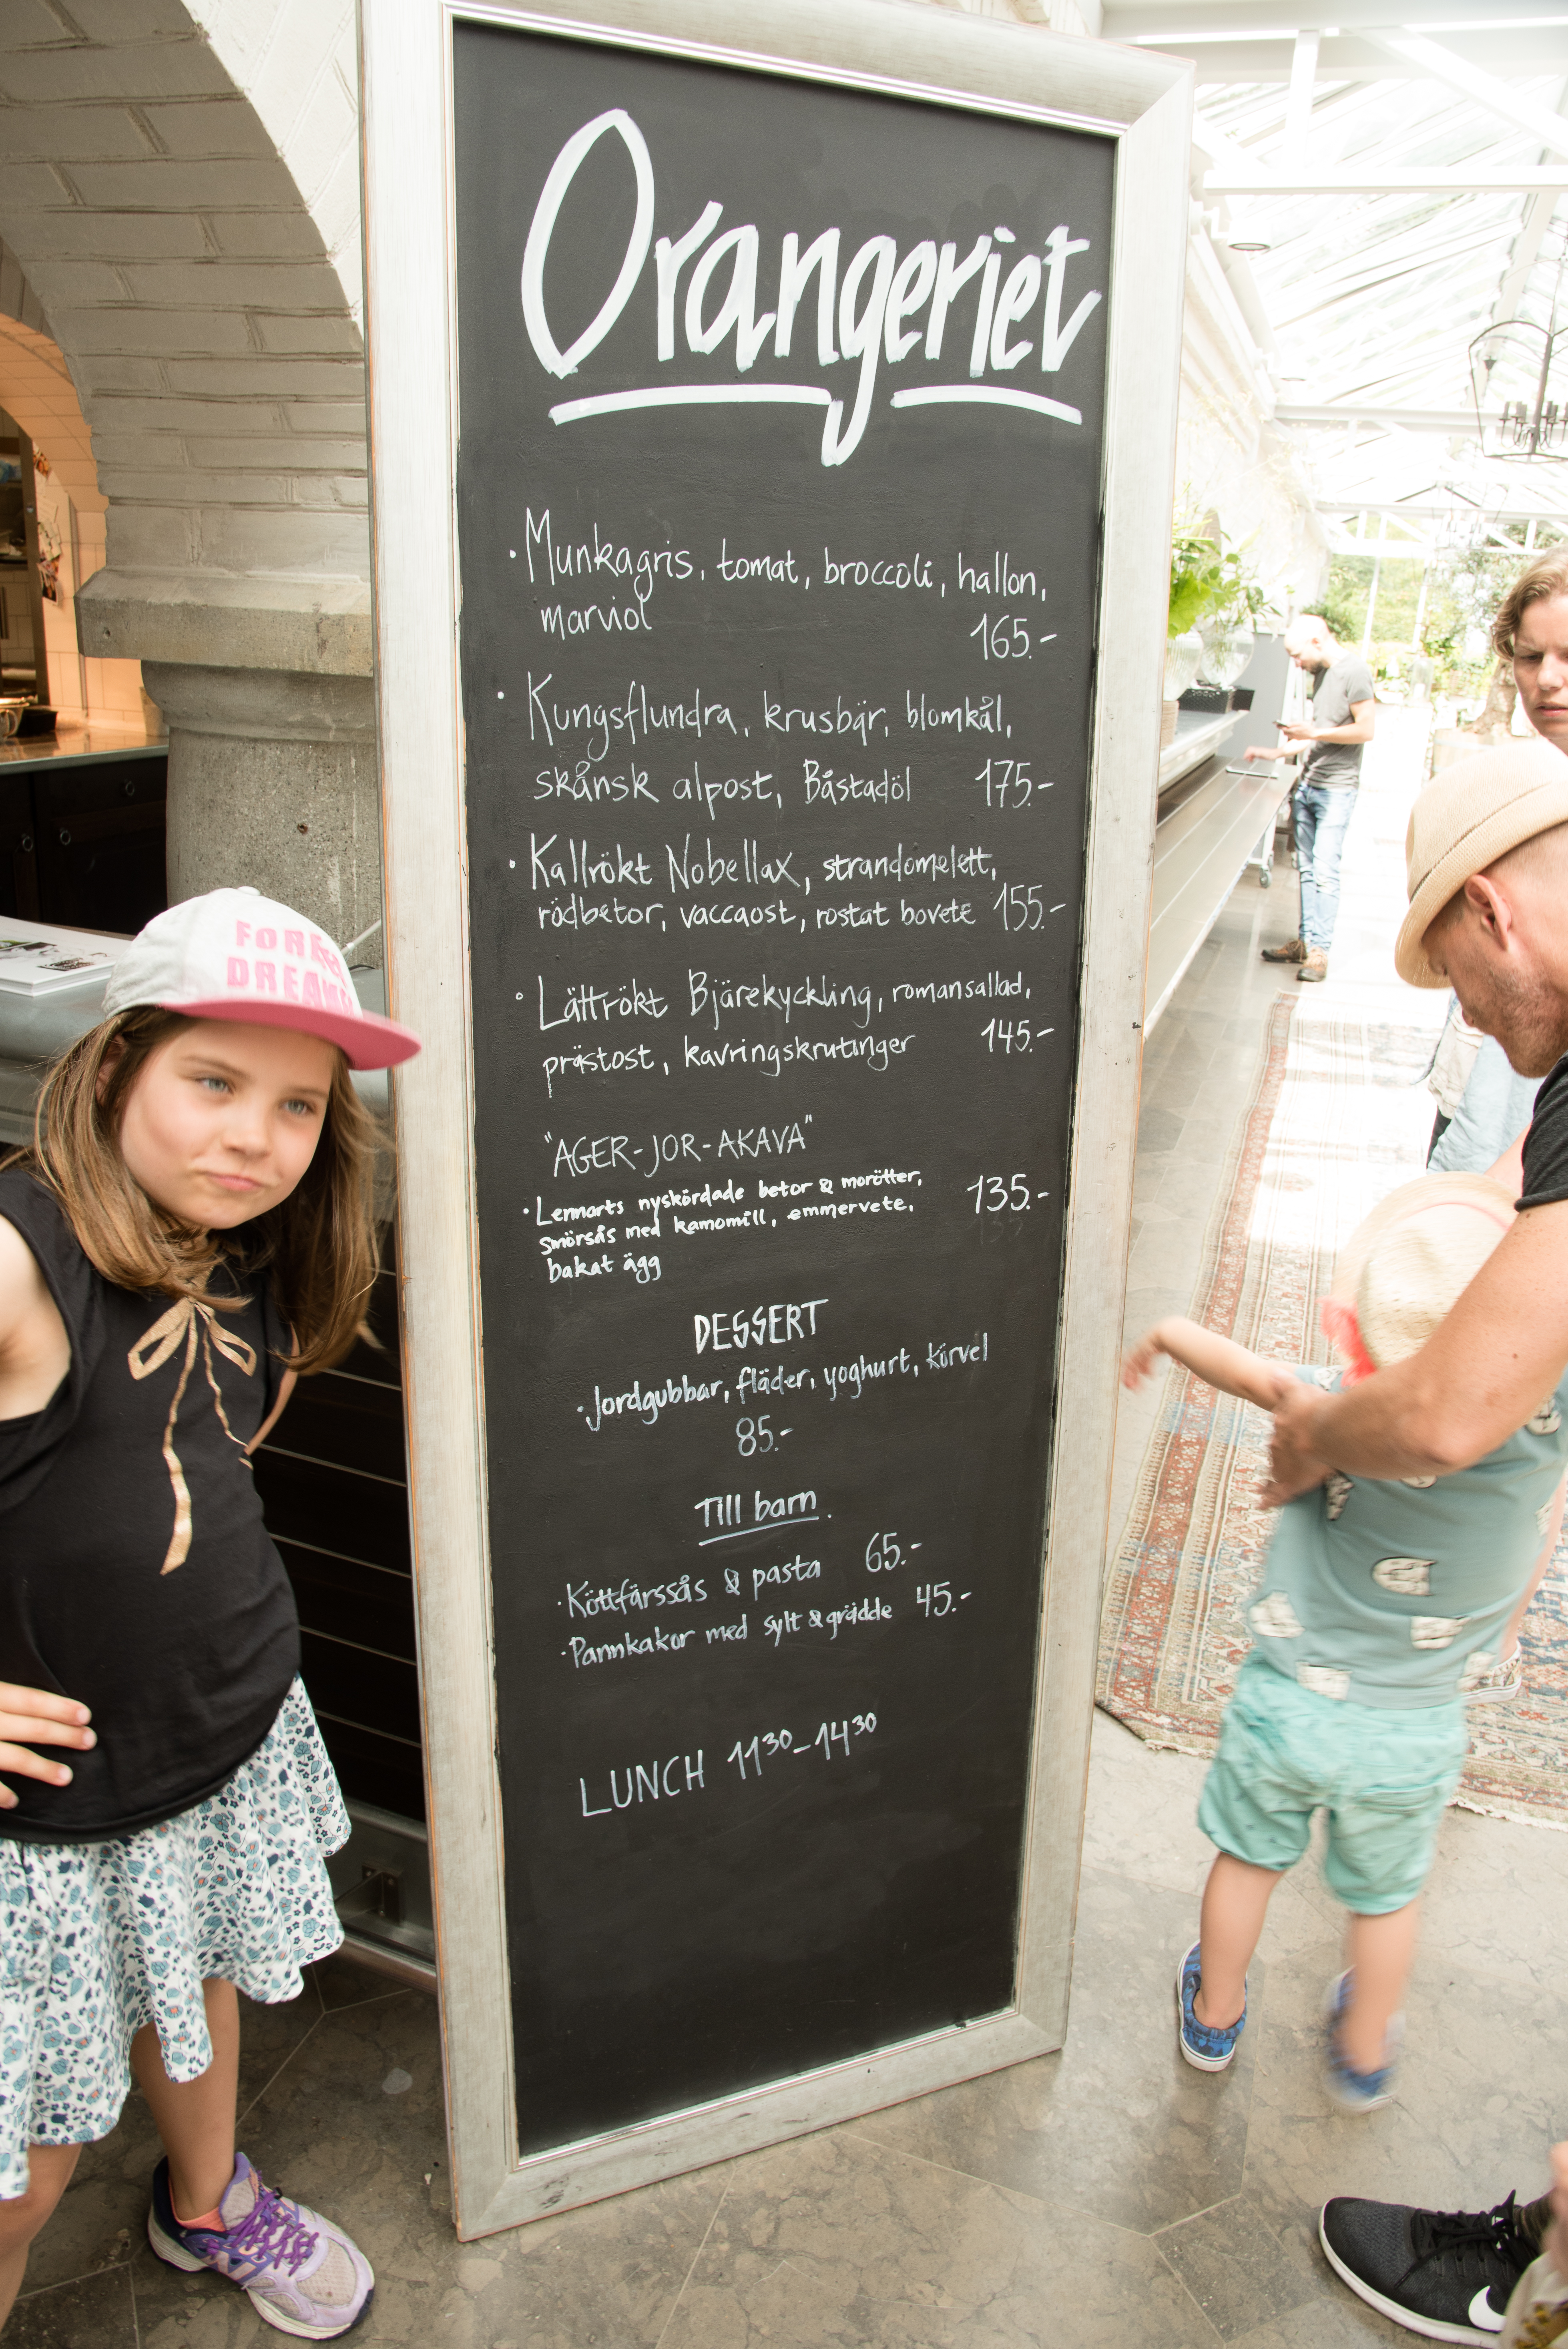 Orangeriet
· Munkagris, tomat, broccoli, hallon,
marviol 165.-
· Kungsflundra, krusbär, blomkål,
skånsk alpost, Båstadöl 175.-
· Kallrökt Nobellax, strandomelett,
rödbetor, vaccaost, rostat bovete 155.-
· Lättrökt Bjärekyckling, romansallad,
prästost, kavringskrutinger 145.-
"AGER-JOR-AKAVA"
· Lennarts nyskördade betor & morötter, 135.-
smörsås med kamomill, emmervete,
bakat ägg
DESSERT
· Jordgubbar, fläder, yoghurt, körvel
85.-
Till barn.
· Köttfärssås & pasta 65.-
· Pannkakor med sylt & grädde 45.-
LUNCH 11³⁰-14³⁰
DREAMS